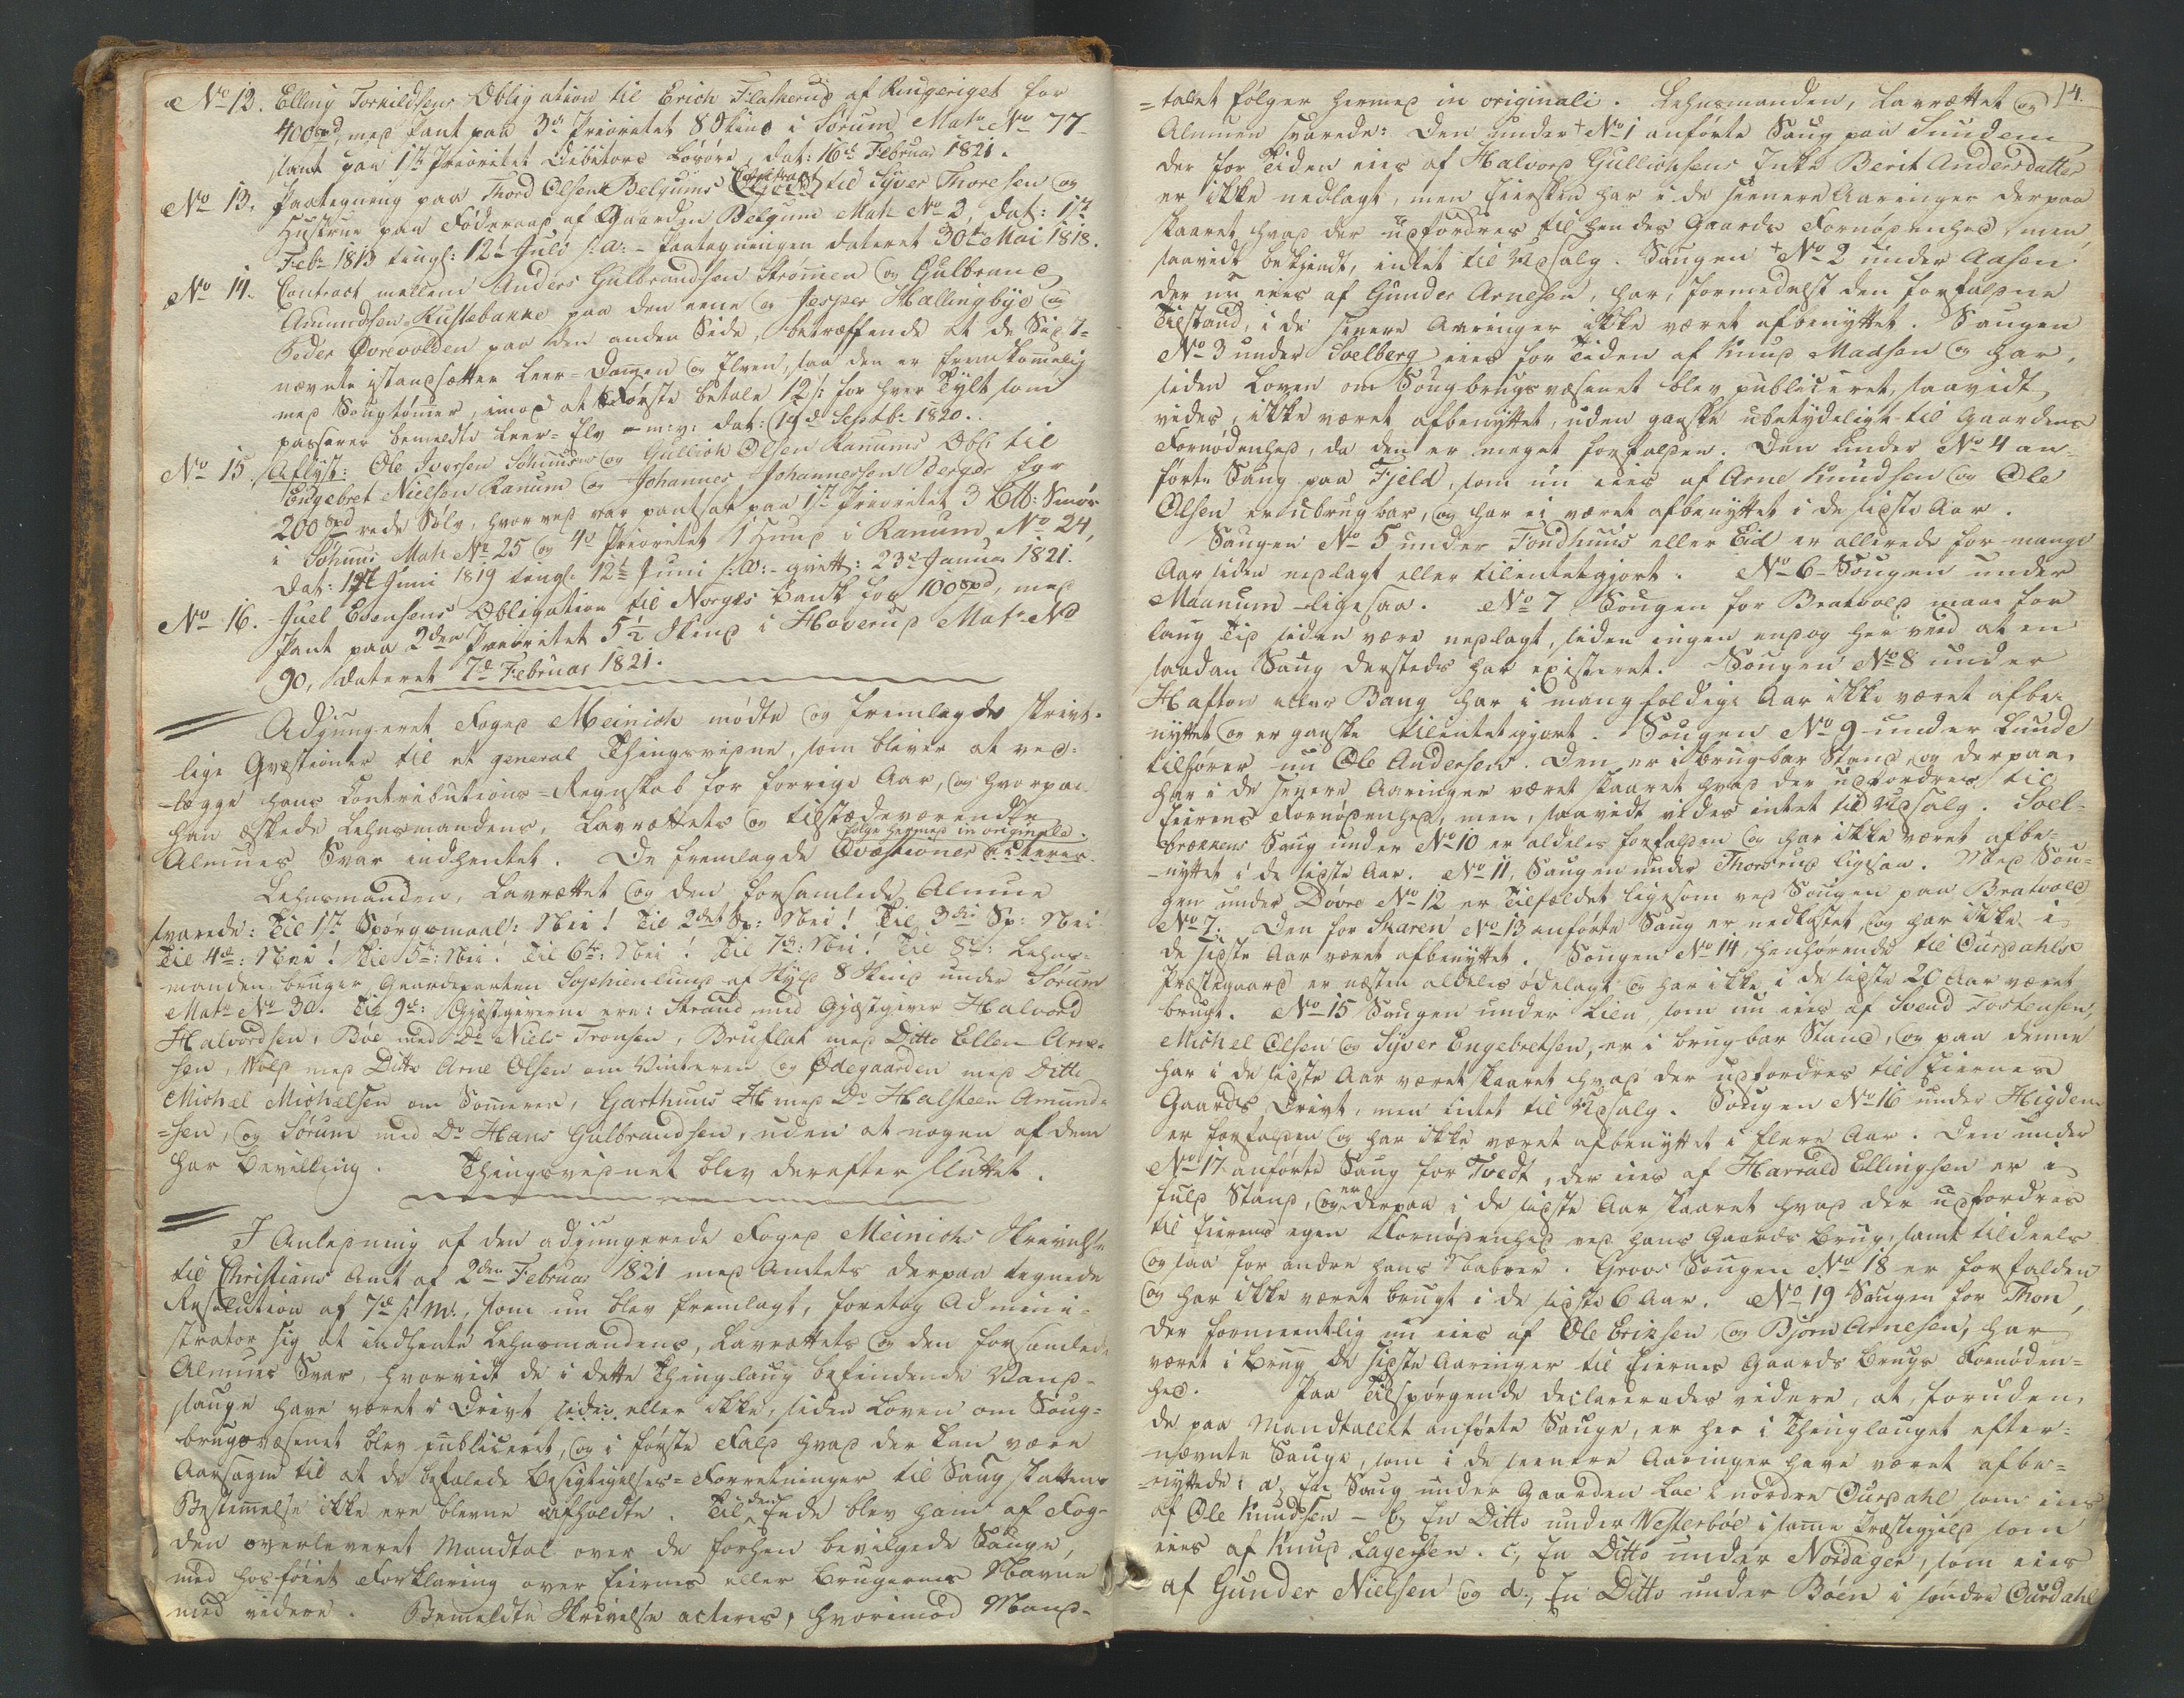 No 12. Elling Torkildsens Obligation til Erich Flaskerud af Ringeriget for
400 spd, med Pant paa 3die Prioritet 8 Skind i Sørum Matr No 77
samt paa 1st Prioritet Debitors Løsøre, dat: 16de Februar 1821.
No 13. Paategning paa Thord Olsens Belgums Contract til Syver Thoresen og
Hustrue paa Føderaad af Gaarden Belgum Matr No 2, dat: 17
Febr 1813 tingl: 12te Juli s: a: - Paategningen dateret 30te Mai 1818.
No 14. Contract mellem Anders Gulbrandsen Strømmen og Gulbrand
Amundsen Kustebakke paa den eene og Jesper Hallingbye og
Peder Øvrevolden paa den anden Side, betræffende at de Sidst-
nævnte istandsætter Leer-Dammen og Elven, saa den er fremkommelig
med Sougtømmer, imod at Første betale 12 s: for hver Tylt som
passerer bemeldte Leer-Elv m: v: dat: 19de Septbr 1820.
No 15. Aflyst: Ole Iversen Søhuus og Gullich Olsen Ranums Obl: til
Engebret Nielsen Ranum og Johannes Johannessen Berger for
200 spd rede Sølv, hvorved var pantsat paa 1st Prioritet 3 Lb: Smør
i Søhuus Matr No 25 og 4de Prioritet 1 Hud i Ranum No 24,
dat: Juni 1819 tingl: 12te Juni s: a: - qvitt: 23de Januar 1821.
No 16. Juel Evensens Obligation til Norges Bank for 100 spd, med
Pant paa 2den Prioritet 5½ Skind i Haverud Matr No
90, dateret 7de Februar 1821.
Adjungeret Foged Meinich mødte og fremlagde skrivt-
lige Qvæstioner til et general Thingsvidne, som bliver at ved-
lægge hans Contributions-Regnskab for forrige Aar, og hvorpaa
han æskede Lehnsmandens, Lavrettets og tilstædeværende
Almues Svar indhentet. De fremlagde Qvæstioner følge hermed in originale.
Lehnsmanden, Lavrettet og den forsamlede Almue
svarede: Til 1st Spørgsmaal: Nei! Til 2det Sp: Nei! Til 3die Sp: Nei
Til 4de: Nei! Til 5te: Nei! Til 6te: Nei! Til 7de: Nei! Til 8de: Lehns-
manden bruger Gaardeparten Sophienlund af Skyld 8 Skind under Sørum
Matr No 30. Til 9de: Gjæstgiverne ere: Strand med Gjæstgiver Halvord
Halvordsen, Bøe med Do Niels Tronsen, Bruflat med Ditto Ellen Arne-
sen, Vold med Ditto Arne Olsen om Vinteren og Ødegaarden med Ditto
Michael Michaelsen om Sommeren, Garthuus med Do Halsteen Amund-
sen, og Sørum med Do Hans Gulbrandsen, uden at nogen af dem
har Bevilling. Thingsvidnet blev derefter sluttet.
I Anledning af den adjungerede Foged Meinichs Skrivelse
til Christians Amt af 2den Februar 1821 med Amtets derpaa tegnede
Resolution af 7de s: M:, som nu blev fremlagt, foretog Admini-
strator sig at indhente Lehnsmandens, Lavrettets og den forsamlede
Almues Svar, hvorvidt de i dette Thinglaug befindende Vand-
sauge have været i Drivt siden eller ikke, siden Loven om Saug-
brugsvæsenet blev publiceret, og i første Fald hvad der kan være
Aarsagen til at de befalede Besigtigelses-Forretninger til Saugskattens
Bestemmelse ikke ere blevne afholdte. Til den Ende blev ham af Fog-
den overleveret Mandtal over de forhen bevilgede Sauge,
med hosføiet Forklaring over Eiernes eller Brugernes Navne
med videre. Bemeldte Skrivelse acteres, hvorimod Mand-
14.
-talet følger hermed in originali. Lehnsmanden, Lavrettet og
Almuen svarede: Den under + No 1 anførte Saug paa Sundem
der for Tiden eies af Halvord Gullichsens Enke Berit Andersdatter
er ikke nedlagt, men Eiersken har i de seenere Aaringer derpaa
skaaret hvad der udfordres til hendes Gaards Fornødenhed, men,
saavidt bekjendt, intet til Udsalg. Saugen + No 2 under Aasen
der nu eies af Gunder Arnesen, har, formedelst den forfaldne
Tilstand, i de senere Aaringer ikke været afbenyttet. Saugen
No 3 under Soelberg eies for Tiden af Knud Madsen og har,
siden Loven om Sougbrugsvæsenet blev publiceret, saavidt
vides, ikke været afbenyttet, uden ganske ubetydeligt til Gaardens
Fornødenhed, da den er meget forfalden. Den under No 4 an-
førte Saug paa Fjeld, som nu eies af Arne Knudsen og Ole
Olsen er ubrugbar, og har ei været afbenyttet i de sidste Aar.
Saugen No 5 under Fondhuus eller Eid er allerede for mange
Aar siden nedlagt eller tilintetgjort. No 6 Sougen under
Maanum - ligesaa. No 7 Sougen for Bratvold maae for
lang Tid siden være nedlagt, siden ingen endog her veed at en
saadan Saug dersteds har existeret. Sougen No 8 under
Hafton eller Bang har i mangfoldige Aar ikke været afbe-
nyttet og er ganske tilintetgjort. Sougen No 9 under Lunde
tilhører nu Ole Andersen. Den er i brugbar Stand, og derpaa
har i de senere Aaringer været skaaret hvad der udfordres til
Eierens Fornødenhed, men, saavidt vides intet til Udsalg. Soel-
brækkens Saug under No 10 er aldeles forfalden og har ikke været afbe-
-nyttet i de sidste Aar. No 11, Saugen under Thorsrud ligesaa. Med Sou-
gen under Døvre No 12 er Tilfældet ligesom ved Sougen paa Bratvold
No 7. Den for Skaren No 13 anførte Saug er nedkastet, og har ikke i
de sidste Aar været afbenyttet. Sougen No 14, henhørende til Ourdahls
Præstegaard er næsten aldeles ødelagt og har ikke i de sidste 20 Aar været
brugt. No 15 Saugen under Lien, som nu eies af Svend Torkensen,
Michel Olsen og Syver Engebretsen, er i brugbar Stand, og paa denne
har i de sidste Aar været skaaret hvad der udfordres til Eiernes
Gaards Drivt, men intet til Udsalg. Sougen No 16 under Higden
er forfalden og har ikke været afbenyttet i flere Aar. Den under
No 17 anførte Saug for Tvedt, der eies af Harrald Ellingsen er i
fuld Stand, og er derpaa i de sidste Aar skaaret hvad der udfordres
til Eierens egen Fornødenhed ved hans Gaards Brug, samt tildeels
ogsaa for andre hans Naboer. Grovs Sougen No 18 er forfalden
og har ikke været brugt i de sidste 6 Aar. No 19 Saugen for Thon,
der formeentlig nu eies af Ole Eriksen og Bjørn Arnesen, har
været i Brug de sidste Aaringer til Eiernes Gaards Brugs Fornøden-
hed. Paa Tilspørgende declareredes videre, at, foruden
de paa Mandtallet anførte Sauge, er her i Thinglauget efter-
nævnte Sauge, som i de seenere Aaringer have været afbe-
-nyttede: a, En Saug under Gaarden Loe i nordre Ourdahl som eies
af Ole Knudsen - b, En Ditto under Vesterbøe i samme Præstegjeld som
eies af Knud Lagersen. c, En Ditto under Nordager, som eies
af Gunder Nielsen og d., En Ditto under Bøen i søndre Ourdahl